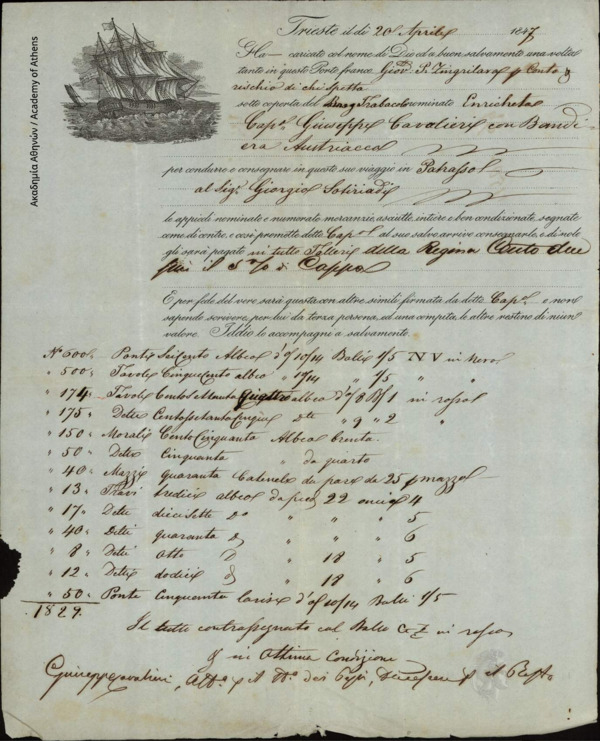 Ακαδημία Αθηνών / Academy of Athens
Trieste il dì 20 Aprile 1847
Ha caricato col nome di Dio ed a buon salvamento una volta
tanto in questo Porto franco Giov. P. Zingrilara p Conto &
rischio di chi spetta
sotto coperta del Trabacolo nominato Enrichetta
Cap.n Giuseppe Cavalieri con Bandi
era Austriaca
per condurre e consegnare in questo suo viaggio in Patrasso
al Sig.r Giorgio Sotiriadi
le appiedi nominate e numerate mercanzie, asciutte, intiere e ben condizionate, segnate
come di contro, e così promette detto Cap.n al suo salvo arrivo consegnarle, e di nolo
gli sarà pagato in tutto Talleri della Regina Cento due
più il 5 % di Cappa
E per fede del vero sarà questa con altre simili firmata da detto Cap.n e non
sapendo scrivere, per lui da terza persona, ed una compita, le altre restino di niun
valore. Iddio le accompagni a salvamento.
N 600 Ponti Seicento Albeo d'o/ 10/14 Balli 1/5 NV in Nero
" 500 Tavole Cinquecento albeo " 10/14 " 1/5 " "
" 174 Tavole Cento Settanta Quattro albeo d'o/ 8 B/ 1 in rosso
" 175 Dette Centosettanta Cinque dtte " 9 " 2 "
" 150 Morali Cento Cinquanta Albeo brenta
" 50 Detti Cinquanta " da quarto
" 40 Mazzi quaranta Cantinele da pare de 25 p mazzo
" 13 Travi tredici albeo da piedi 22 oncie 4
" 17 Dette diecisette do " " 5
" 40 Detti quaranta do " " 6
" 8 Detti otto do " 18 " 5
" 12 Detti dodici do " 18 " 6
" 50 Ponte Cinquanta larise d'o/ 10/14 Balli 1/5
1829
Il tutto contrassegnato col Bollo in rosso
& in Ottima Condizione
Giuseppe Cavalieri,